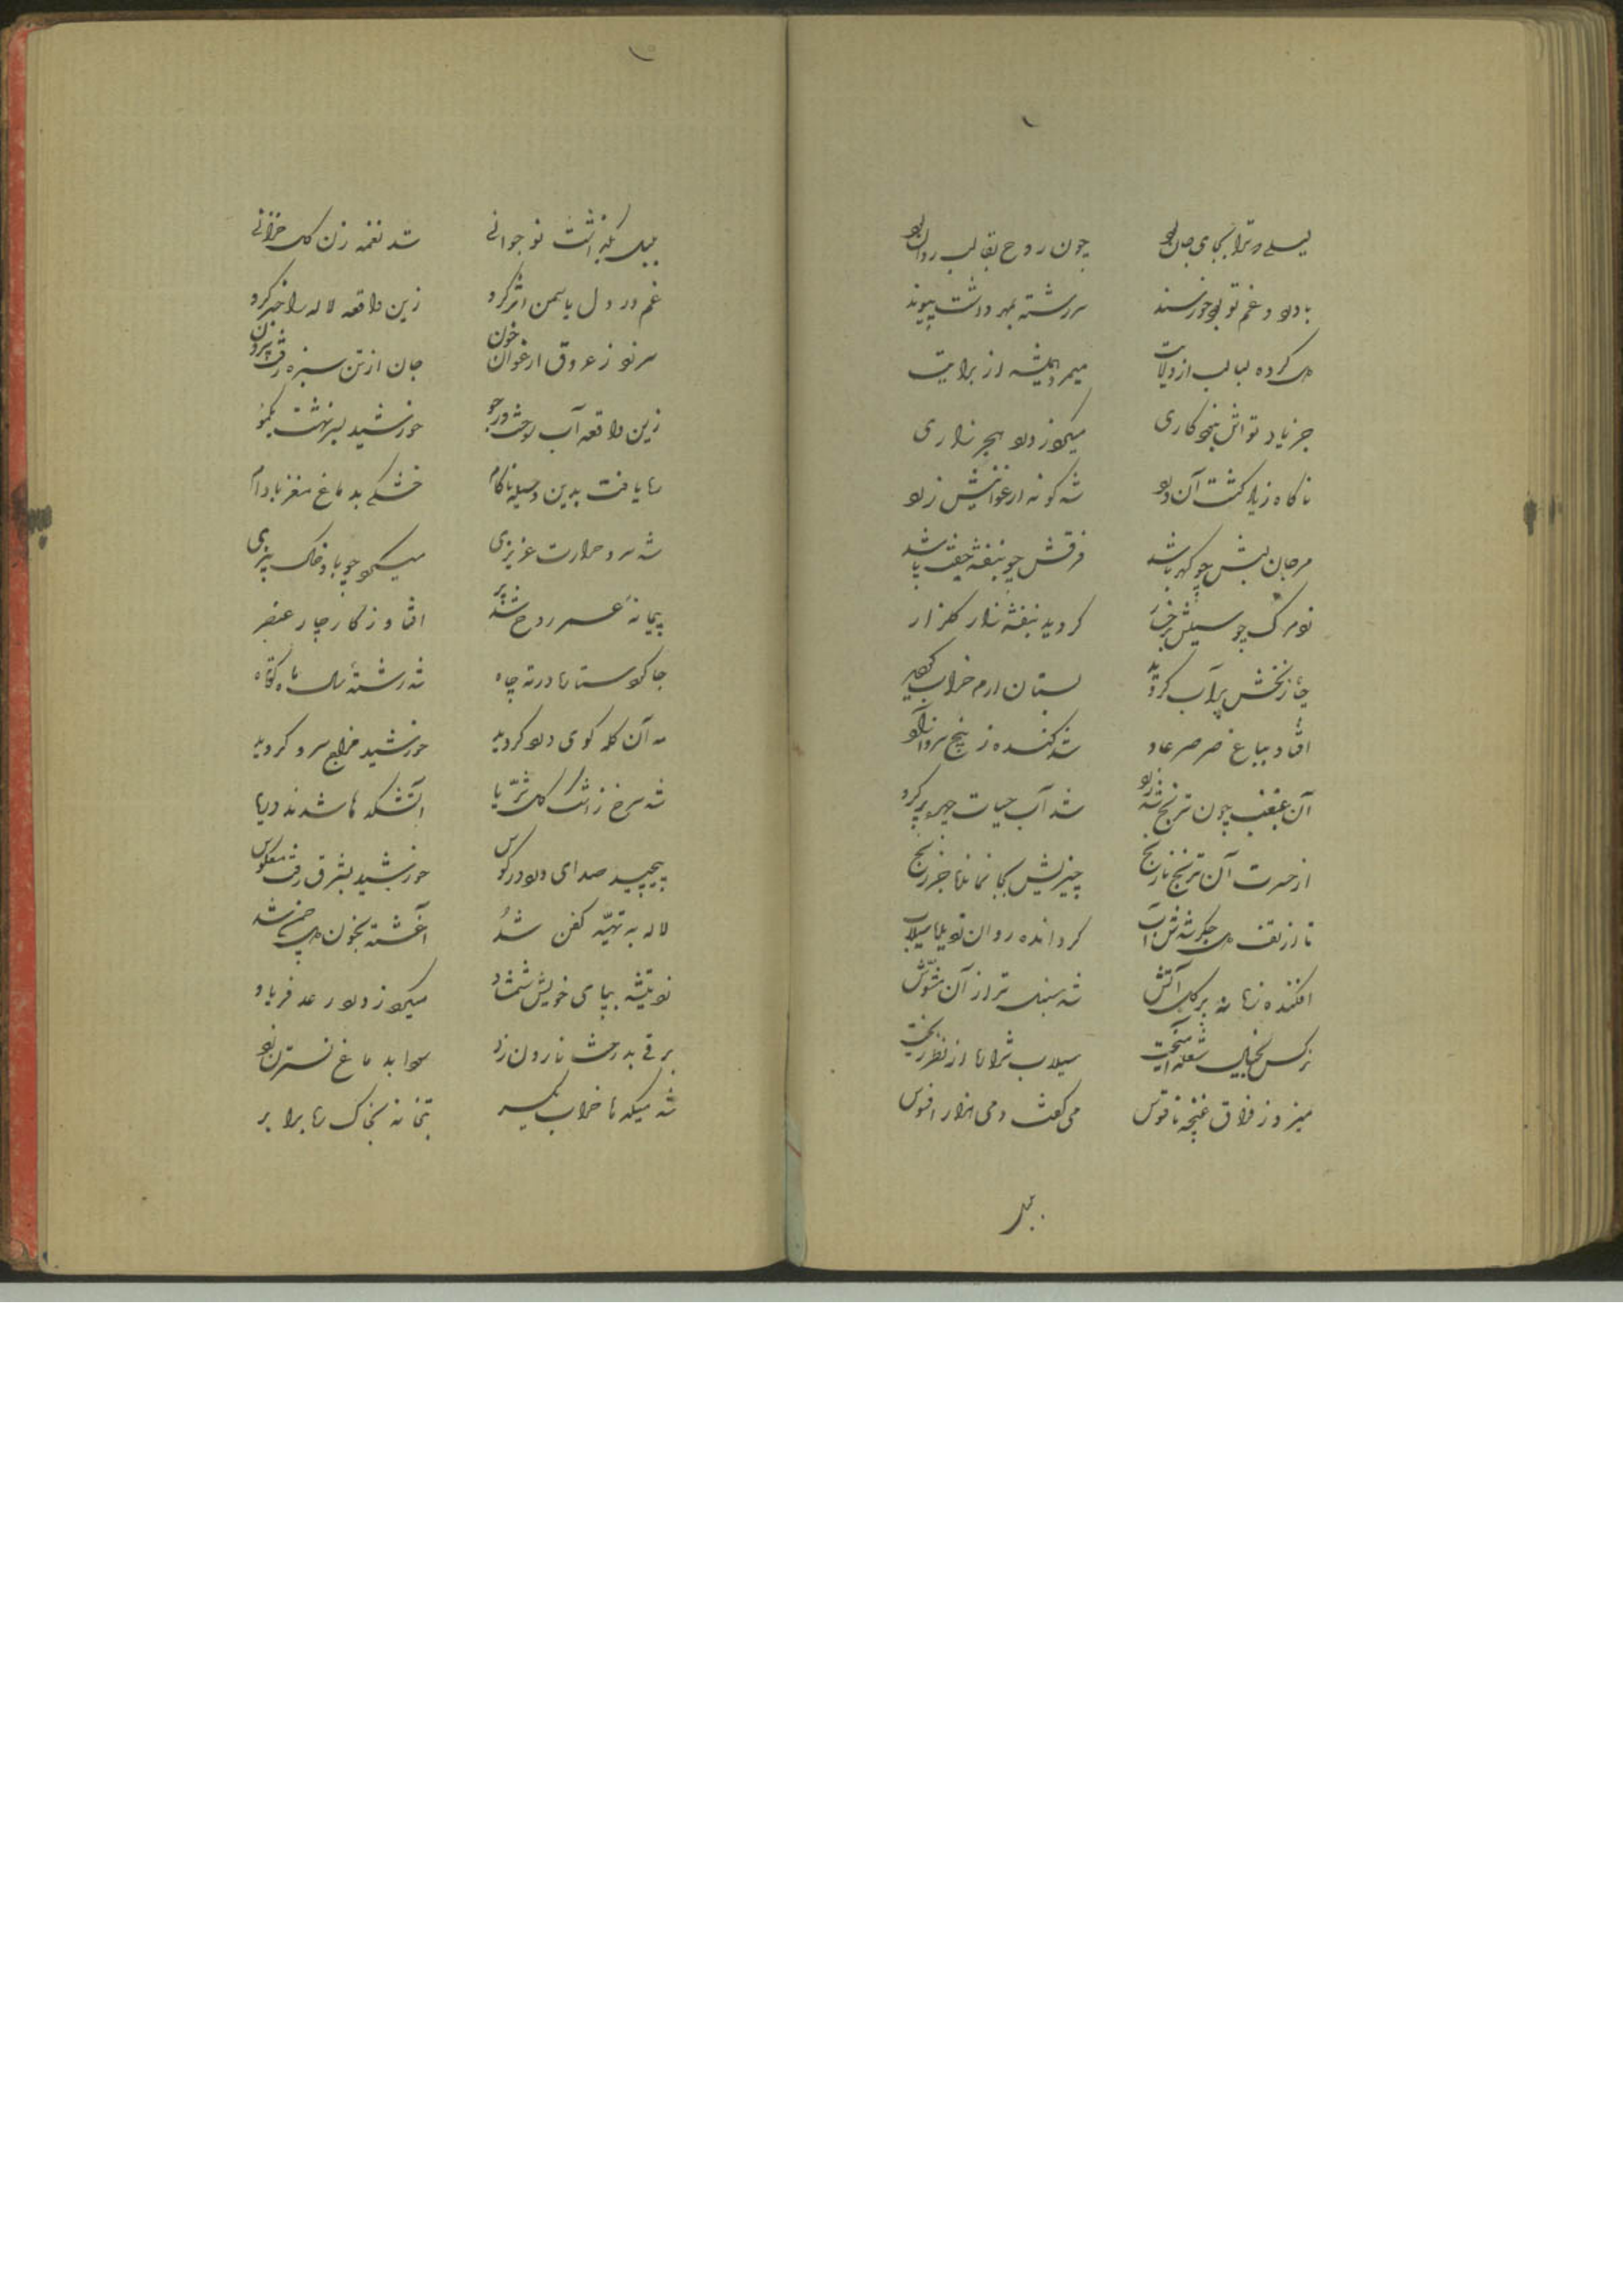 چون روح بقالب روان بود
با درد و غم تو بود خورسند سررشته بمهر داشت پیوند
دل کرده لبالب از ولایت میمرد همیشه از برایت
جز یاد تواش نبود کاری میکرد ز درد هجر زاری
ناگاه زیاد گشت آن درد شد گونه ارغوانیش زرد
مرجان لبش چو کهربا شد فرقش چو بنفشه
گردید بنفشه زار گلزار
چاه زنخش پر آب گردید بستان ارم خراب گردید
افتاد بباغ صرصر عاد شد کنده ز بیخ سرو آزاد
آن غبغب چون ترنج شد زرد شد آب حیات
از حسرت آن ترنج نارنج چیزیش بجا نماند جز رنج
تا از تف دل جگر شدش آب گردانده روان
افکنده زبانه بر گل آتش شد سنبل تر از آن مشوش
نرگس بخیال شعله سیلاب از نظر ریخت
میزد ز فراق غنچه ناقوس می گفت دمی هزار افسوس
بلبل
بلبل بگذاشت نوجوانی شد نغمه زن گل خزانی
غم در دل یاسمن اثر کرد زین واقعه لاله را خبر کرد
سر زد ز عروق ارغوان خون جان از تن سبزه رفت بیرون
زین واقعه آب ریخت در جو خورشید
یافت بدین وسیله ناکام خشکی بدماغ مغز بادام
شد سرد حرارت غریزی میکرد چو باد خاک بیزی
پیمانه عمر روح شد پر افتاد ز کار چار عنصر
جا کرد ستاره در ته چاه شد رشته سال و ماه کوتاه
مه آن کله گوی درد گردید خورشید مزاج سرد گردید
شد سرخ ز اشک گل ثریا آتشکدها شدند دریا
پیچید صدای درد در کوس خورشید بشرق رفت معکوس
لاله به تهیه کفن شد آغشته بخون دل چمن شد
زد تیشه بپای خویش شمشاد میکرد ز درد رعد فریاد
برقی بدرخت نارون زد سودا بدماغ نسترن زد
شد میکدها خراب یکسر بتخانه بخاک شد برابر